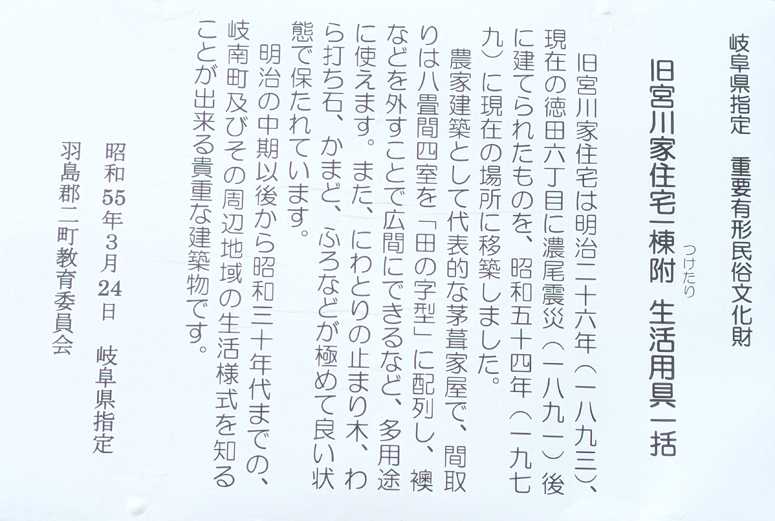 岐阜県指定　重要有形民俗文化財
旧宮川家住宅一棟附　生活用具一括
つけたり
旧宮川家住宅は明治二十六年（一八九三）、
現在の徳田六丁目に濃尾震災（一八九一）後
に建てられたものを、昭和五十四年（一九七
九）に現在の場所に移築しました。
農家建築として代表的な茅葺家屋で、間取
りは八畳間四室を「田の字型」に配列し、襖
などを外すことで広間にできるなど、多用途
に使えます。また、にわとりの止まり木、わ
ら打ち石、かまど、ふろなどが極めて良い状
態で保たれています。
明治の中期以後から昭和三十年代までの、
岐南町及びその周辺地域の生活様式を知る
ことが出来る貴重な建築物です。
昭和55年3月24日　岐阜県指定
羽島郡二町教育委員会